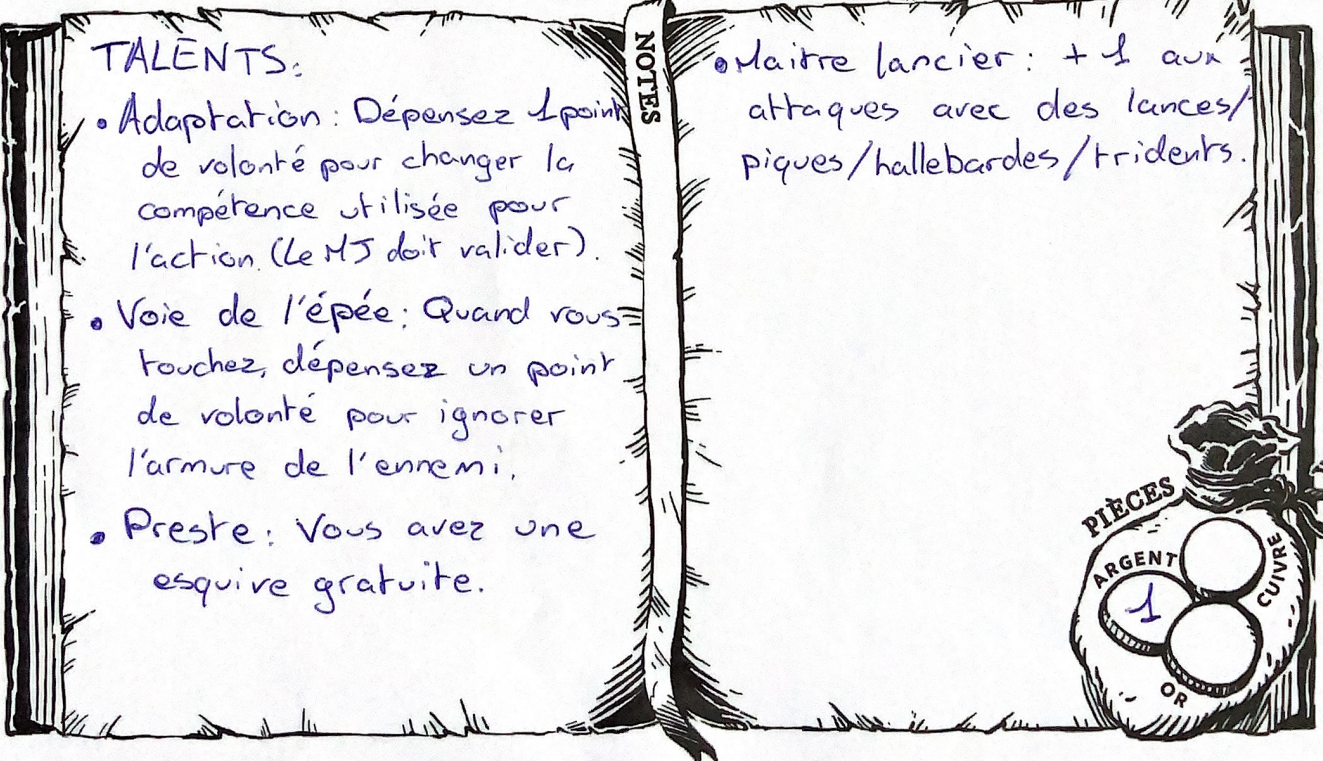 TALENTS:
• Adaptation: Dépensez 1 point
de volonté pour changer la
compétence utilisée pour
l'action. (Le MJ doit valider).
• Voie de l'épée: Quand vous
touchez, dépensez un point
de volonté pour ignorer
l'armure de l'ennemi.
• Preste: Vous avez une
esquive gratuite.
NOTES
• Maitre lancier: +1 aux
attaques avec des lances/
piques/hallebardes/tridents.
PIÈCES
ARGENT
1
CUIVRE
OR